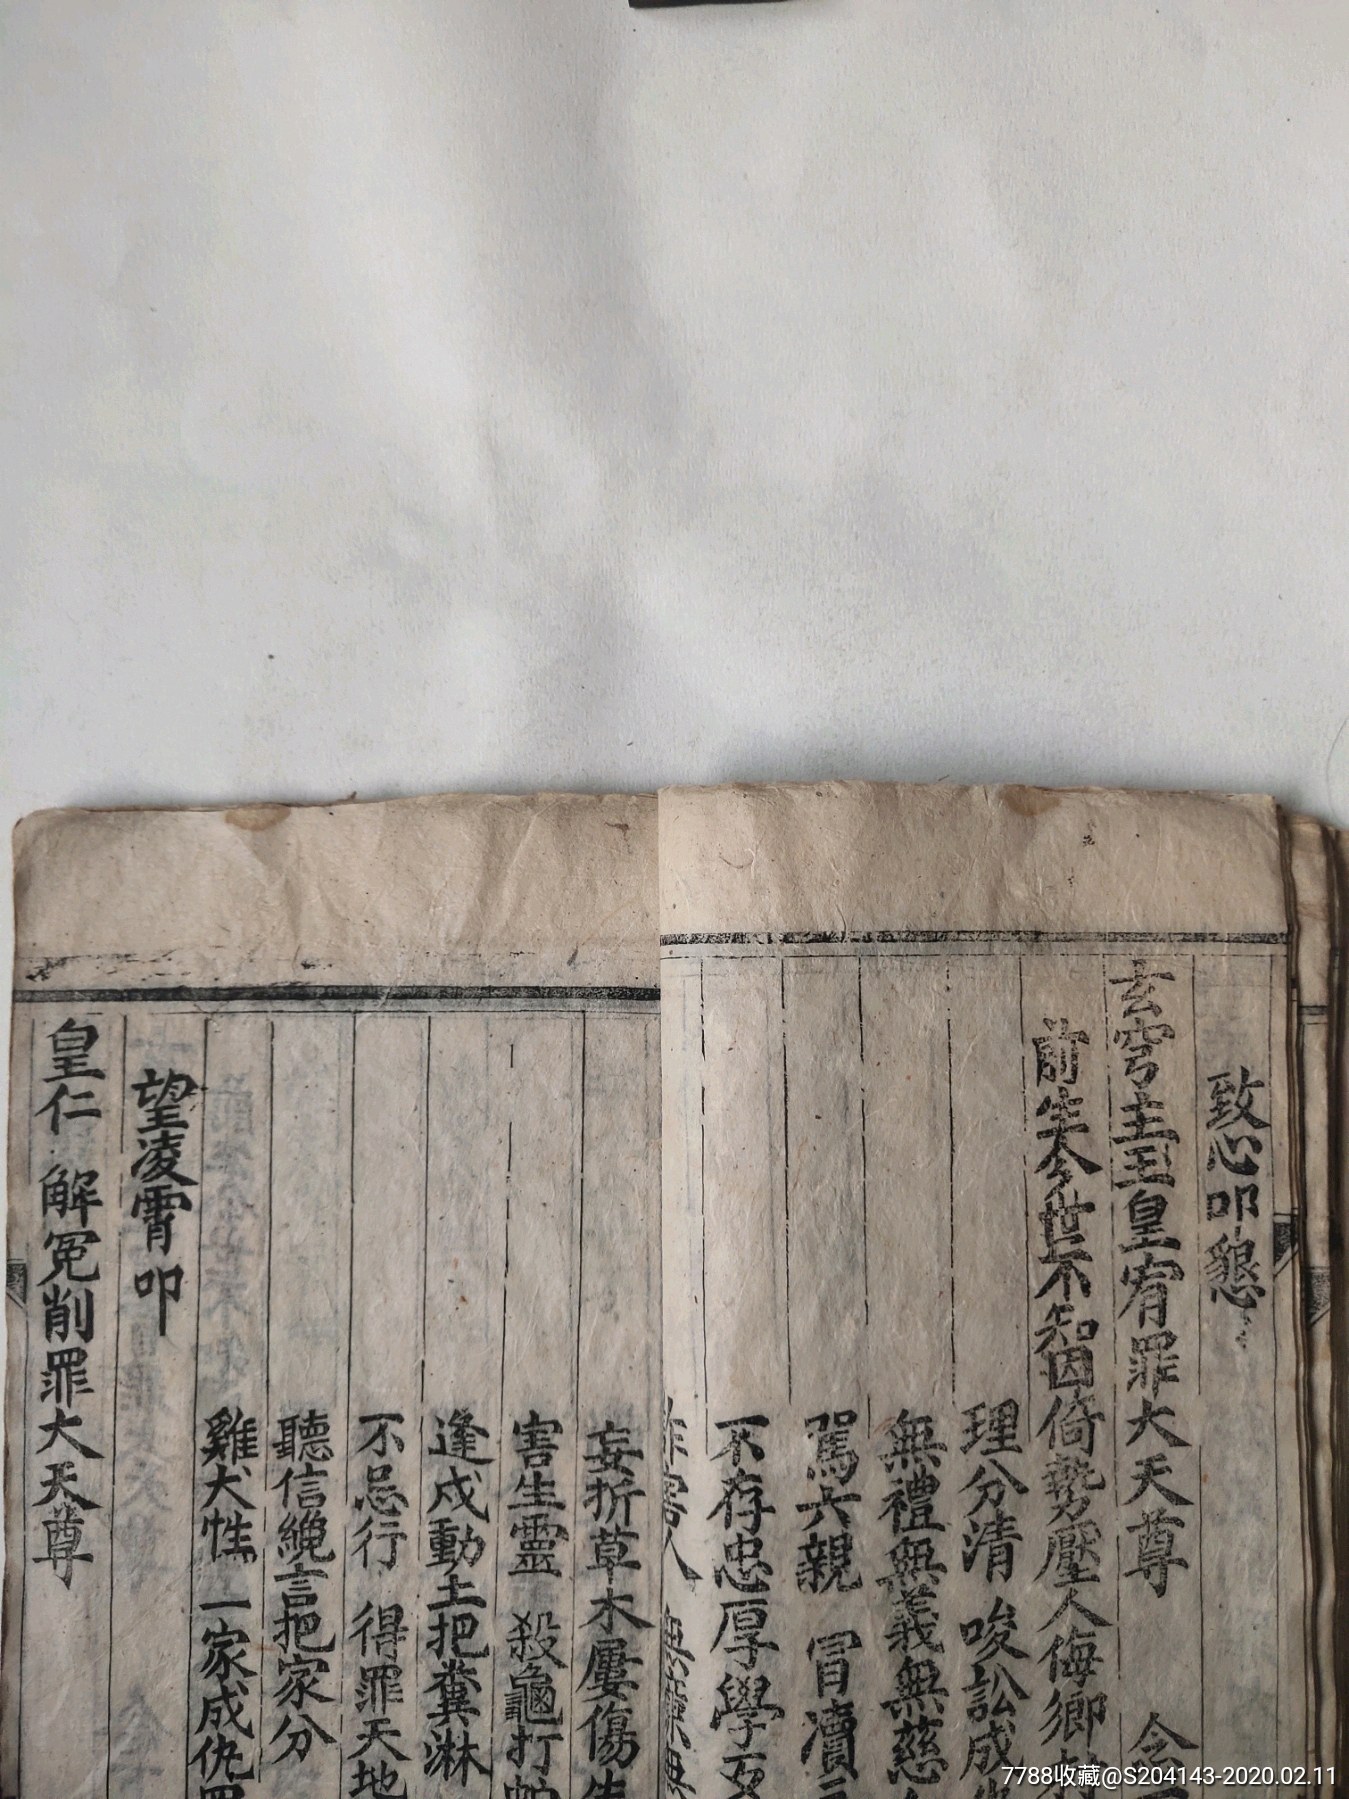 致心叩懇
玄穹主玉皇宥罪大天尊 念
前生今世不知因倚勢壓人侮鄉村
理分清 唆訟成
無禮無義無慈
罵六親 冒瀆
不存忠厚學
害人
妄折草木屢傷生
害生靈 殺龜打
逢戍動土把糞淋
不忌行 得罪天地
聽信綣言把家分
雞犬性 一家成仇
望凌霄叩
皇仁 解冤削罪大天尊
7788收藏@S204143-2020.02.11